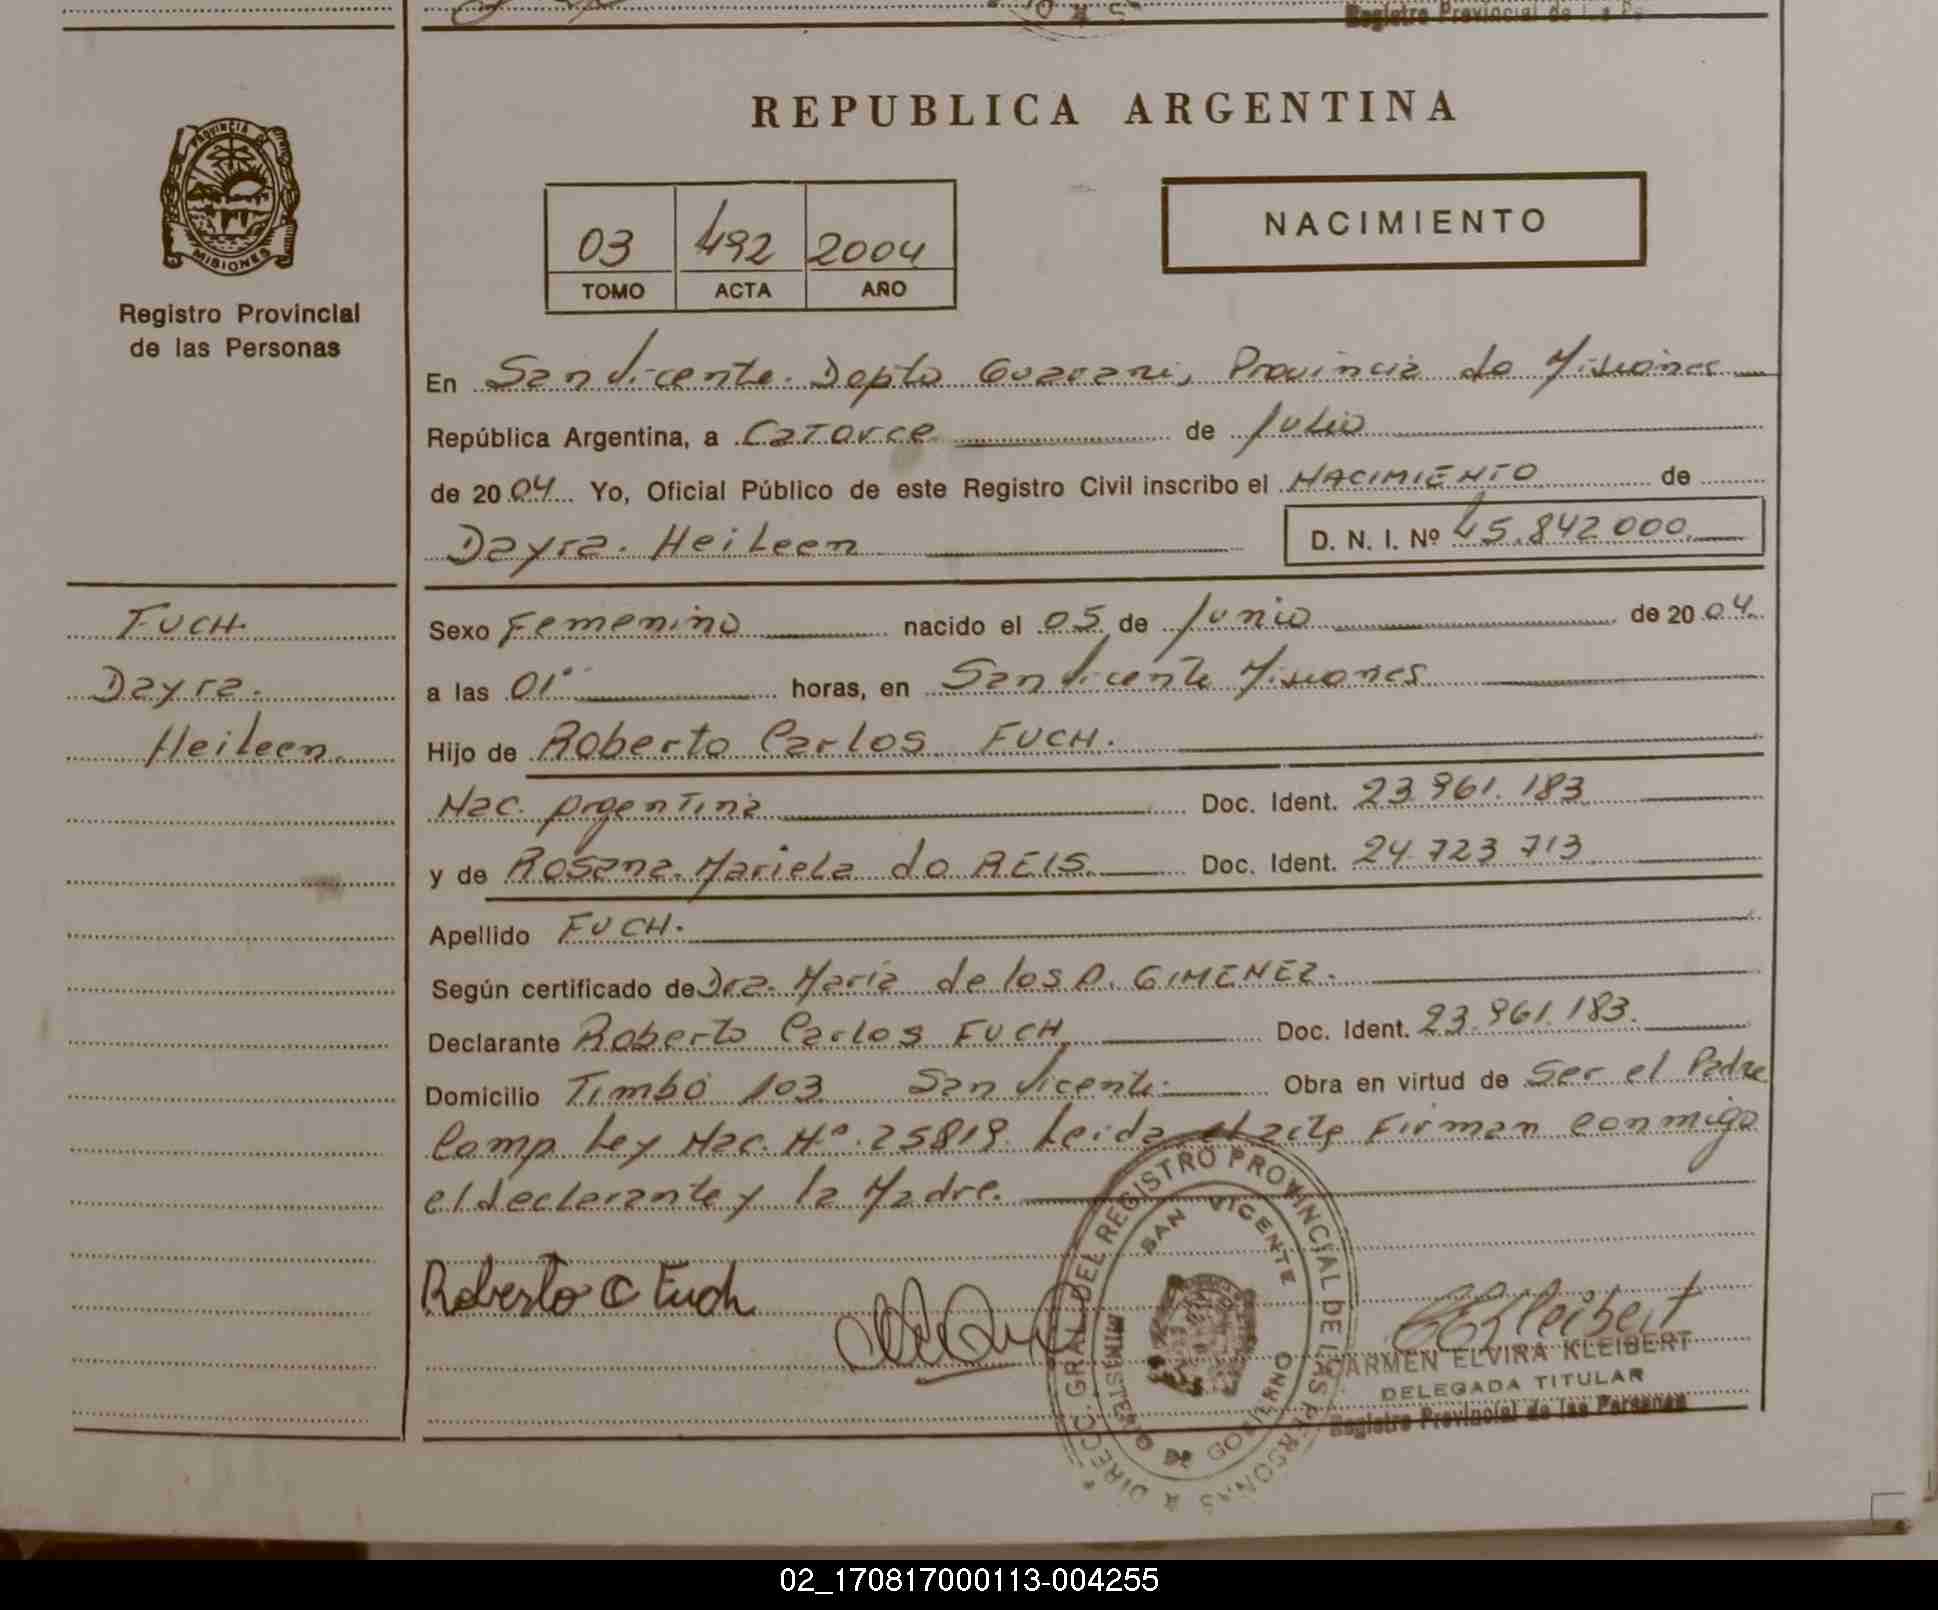 Registro Provincial de las Pe
REPUBLICA ARGENTINA
PROVINCIA DE
MISIONES
Registro Provincial
de las Personas
03 492 2004
TOMO ACTA AÑO
NACIMIENTO
En San Vicente. Depto Guarani, Provincia de Misiones
República Argentina, a Catorce de Julio
de 2004 Yo, Oficial Público de este Registro Civil inscribo el NACIMIENTO de
Dayra. Heileen D. N. I. Nº 45.842 000
FUCH.
Dayra.
Heileen.
Sexo Femenino nacido el 05 de Junio de 2004.
a las 01 horas, en San Vicente Misiones
Hijo de Roberto Carlos FUCH.
Nac. Argentina Doc. Ident. 23.961.183
y de Rosana. Mariela do REIS. Doc. Ident. 24.723 713
Apellido FUCH.
Según certificado de Dra. Maria de los A. GIMENEZ.
Declarante Roberto Carlos FUCH Doc. Ident. 23.961.183.
Domicilio Timbó 103 San Vicente. Obra en virtud de Ser el Padre
Comp Ley Nac. Nº 25819. Leida el acta Firman conmigo
el declarante y la Madre.
Roberto C Fuch
DIRECC. GRAL DEL REGISTRO PROVINCIAL DE LAS PERSONAS
SAN VICENTE
MINISTERIO DE GOBIERNO
CEKleibert
CARMEN ELVIRA KLEIBERT
DELEGADA TITULAR
Registro Provincial de las Personas
02_170817000113-004255